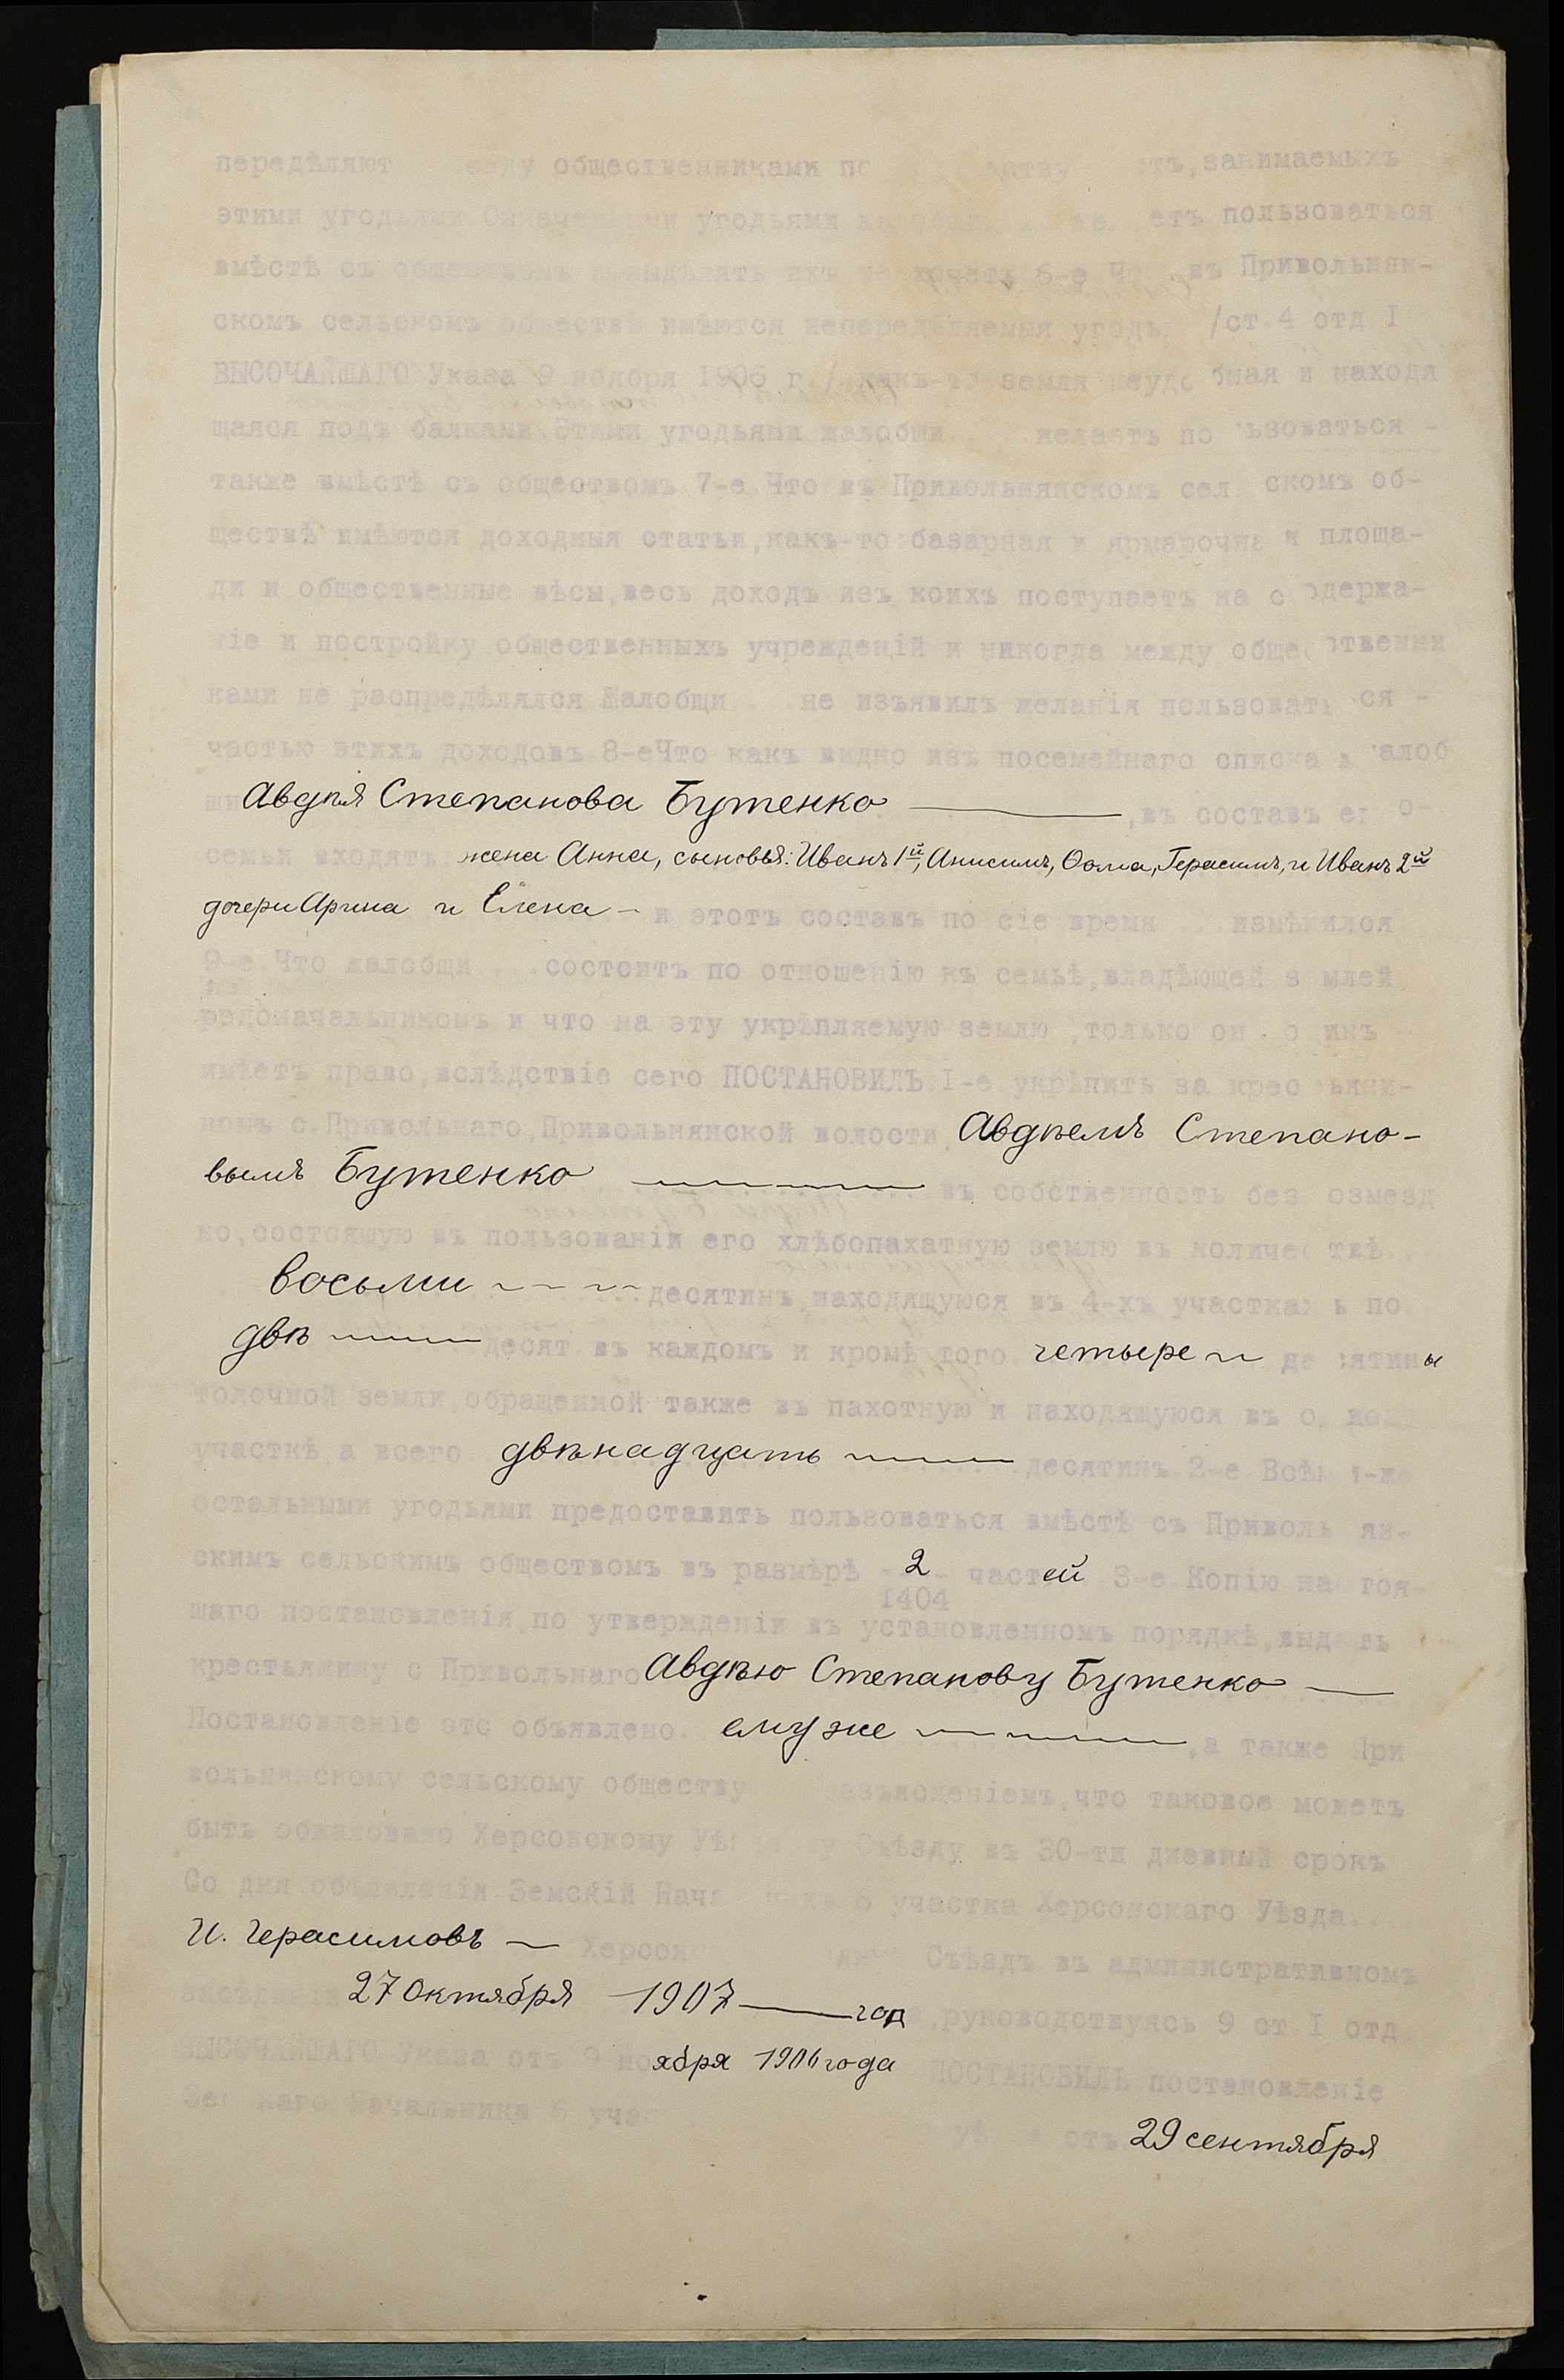 передѣляют между общественниками по занимаемыхъ
этими угодьями. Означенными угодьями етъ пользоваться
вмѣстѣ съ обществомъ и выдѣлять ихъ не хочетъ 6-е въ Привольнян-
скомъ сельскомъ обществѣ имѣются непередѣляемыя угодь /ст. 4 отд I
ВЫСОЧАЙШАГО Указа 9 ноября 1906 г./ какъ то земля неудо бная и находя
щаяся подъ балками. Этими угодьями жалобщи желаетъ по ьзоваться -
также вмѣстѣ съ обществомъ 7-е Что въ Привольнянскомъ сел скомъ об-
ществѣ имѣются доходныя статьи,какъ-то:базарная и ярмарочна я площа-
ди и общественные вѣсы,весь доходъ изъ коихъ поступаетъ на с одержа-
ніе и постройку общественныхъ учрежденій и никогда между обще ственни
ками не распредѣлялся Жалобщи не изъявилъ желанія пользоватъ ся -
частью этихъ доходовъ 8-еЧто какъ видно изъ посемейнаго списка алоб
Авдѣя Степанова Бутенко ,въ составъ ег о-
семьи входятъ жена Анна, сыновья: Иванъ 1й, Анисимъ, Ѳома, Герасимъ, и Иванъ 2й
дочери Арина и Елена - и этотъ составъ по сіе время измѣнился
9-е Что жалобщи состоитъ по отношенію къ семьѣ,владѣющей з млей
родоначальникомъ и что на эту укрѣпляемую землю ,только он о инъ
имѣетъ право,вслѣдствіе сего ПОСТАНОВИЛЪ I-е укрѣпить за крес ьяни-
номъ с Привольнаго,Привольнянской волости Авдѣемъ Степано-
вымъ Бутенко въ собственность без озмезд
но,состоящую въ пользованіи его хлѣбопахатную землю въ количес твѣ
восьми десятинъ,находящуюся въ 4-хъ участкахъ по
двѣ десят въ каждомъ и кромѣ того четыре де сятины
толочной земли,обращенной также въ пахотную и находящуюся въ о
участкѣ а всего двѣнадцать десятинъ 2-е Всѣм и-же
остальными угодьями предоставить пользоваться вмѣстѣ съ Приволь ян-
скимъ сельскимъ обществомъ въ размѣрѣ 2/1404 частей 3-е Копію нас тоя-
щаго постановленія,по утвержденіи въ установленномъ порядкѣ,выдать
крестьянину с Привольнаго Авдѣю Степанову Бутенко
Постановленіе это объявлено ему же ,а также При
вольнянскому сельскому обществу разъясненіемъ,что таковое можетъ
быть обжаловано Херсонскому Уѣ му Съѣзду въ 30-ти дневный срокъ
Со дня объявленія Земскій Нача 6 участка Херсонскаго Уѣзда
И. Герасимовъ Херсон Съѣздъ въ административномъ
27 Октября 1907 год ,руководствуясь 9 ст I отд
ВЫСОЧАЙШАГО Указа отъ 9 но ября 1906 года ПОСТАНОВИЛЪ постановленіе
Зе каго Начальника 6 уча 29 сентября